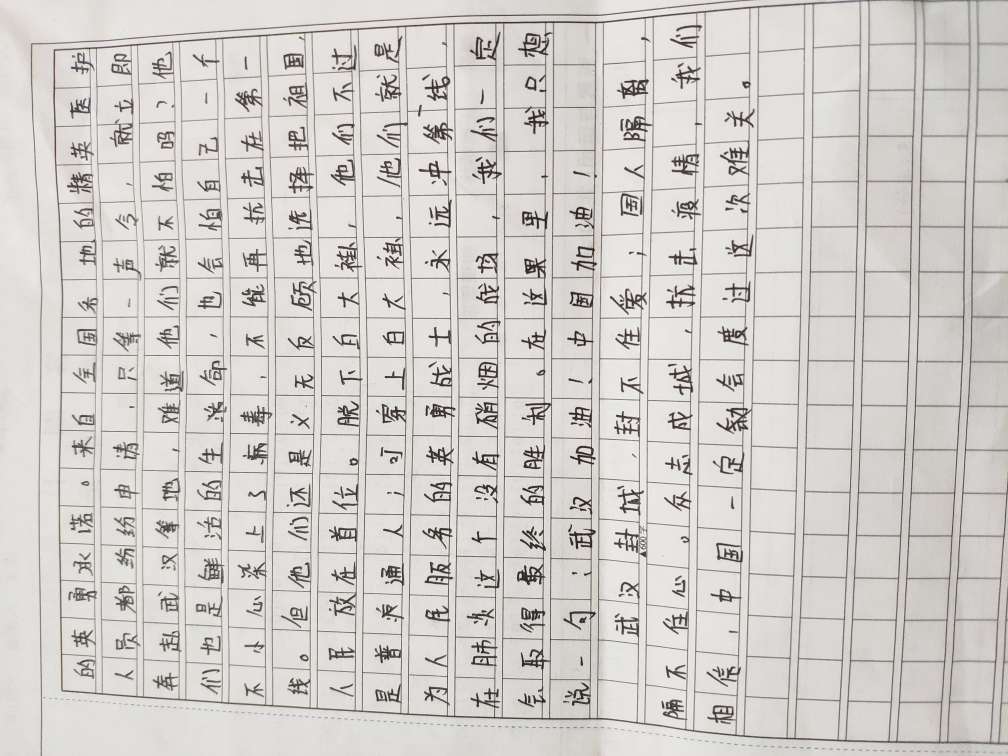 的英勇承诺。来自全国各地的精英医护
人员都纷纷申请，只等一声令，就立即
奔赴武汉等地，难道他们就不怕吗？他
们也是鲜活的生命，也会怕自己一个
不小心染上了病毒，不能再抗击在第一
线。但他们还是义无反顾地选择把祖国，
人民放在首位。脱下白大褂，他们不过
是普通人；可穿上白大褂，他们就是
为人民服务的英勇战士，永远冲第一线。
在这个没有硝烟的战场，我们一定
会取得最终的胜利。在这里，我只想
说一句：武汉加油！中国加油！
武汉封城，封不住爱；国人隔离，
▲600字
隔不住心。众志成城，抗击疫情，我们
相信，中国一定会度过这次难关。